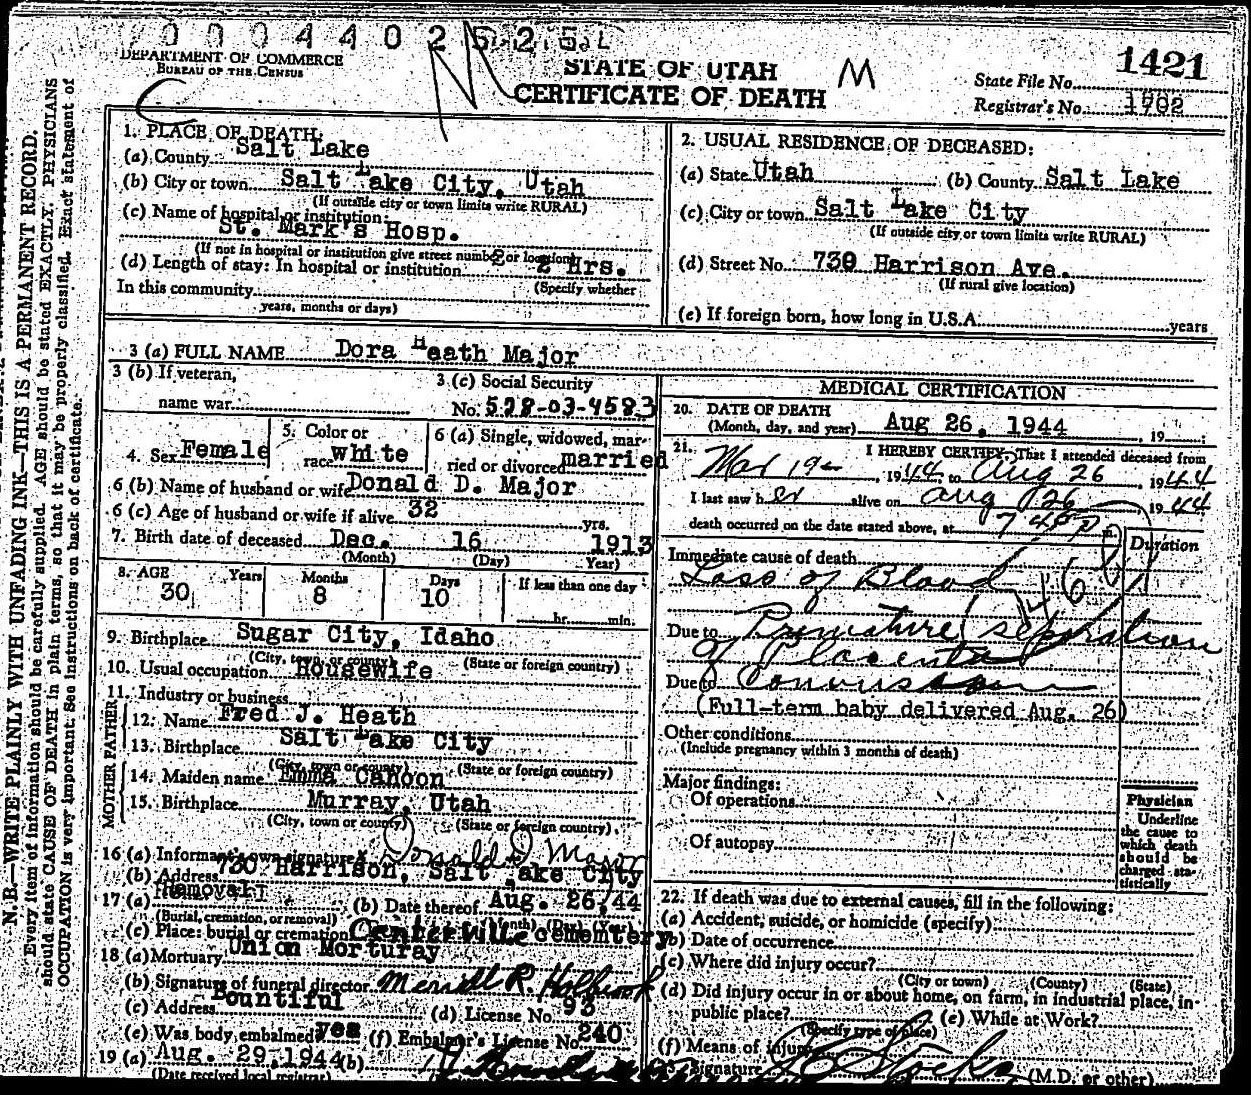 0 0 0 4 4 0 2 5 2
DEPARTMENT OF COMMERCE
BUREAU OF THE CENSUS
STATE OF UTAH
CERTIFICATE OF DEATH
M
C
State File No. 1421
Registrar's No. 1702
N. B.—WRITE PLAINLY WITH UNFADING INK—THIS IS A PERMANENT RECORD.
Every item of information should be carefully supplied. AGE should be stated EXACTLY. PHYSICIANS
should state CAUSE OF DEATH in plain terms, so that it may be properly classified. Exact statement of
OCCUPATION is very important. See instructions on back of certificate.
1. PLACE OF DEATH:
(a) County Salt Lake
(b) City or town Salt Lake City, Utah
(If outside city or town limits write RURAL)
(c) Name of hospital or institution:
St. Mark's Hosp.
(If not in hospital or institution give street number or location)
(d) Length of stay: In hospital or institution 2 Hrs.
(Specify whether
In this community
years, months or days)
2. USUAL RESIDENCE OF DECEASED:
(a) State Utah (b) County Salt Lake
(c) City or town Salt Lake City
(If outside city or town limits write RURAL)
(d) Street No. 730 Harrison Ave.
(If rural give location)
(e) If foreign born, how long in U.S.A. years
3 (a) FULL NAME Dora Heath Major
3 (b) If veteran,
name war
3 (c) Social Security
No. 528-03-4583
4. Sex Female
5. Color or
race white
6 (a) Single, widowed, mar-
ried or divorced married
6 (b) Name of husband or wife Donald D. Major
6 (c) Age of husband or wife if alive 32 yrs.
7. Birth date of deceased Dec. 16 1913
(Month) (Day) Year)
8. AGE Years Months Days If less than one day
30 8 10 hr. min.
9. Birthplace Sugar City, Idaho
(City, town or county) (State or foreign country)
10. Usual occupation Housewife
11. Industry or business
FATHER
12. Name Fred J. Heath
13. Birthplace Salt Lake City
(City, town or county) (State or foreign country)
MOTHER
14. Maiden name Emma Cahoon
15. Birthplace Murray, Utah
(City, town or county) (State or foreign country)
16 (a) Informant's own signature Donald D Major
(b) Address 730 Harrison, Salt Lake City
17 (a) Removal (b) Date thereof Aug. 26, 44
(Burial, cremation, or removal) (Month) (Day) (Year)
(c) Place: burial or cremation Centerville cementery
18 (a) Mortuary Union Morturay
(b) Signature of funeral director Merrill R. Holbrook
(c) Address Bountiful (d) License No. 93
(e) Was body embalmed yes (f) Embalmer's License No. 240
19 (a) Aug. 29, 1944 (b)
(Date received local registrar)
MEDICAL CERTIFICATION
20. DATE OF DEATH
(Month, day, and year) Aug 26, 1944 , 19
21. I HEREBY CERTIFY, That I attended deceased from
Mar 19 1944 to Aug 26 1944
I last saw her alive on Aug 26 1944
death occurred on the date stated above, at 7 45 P m.
Duration
Immediate cause of death
Loss of Blood
Due to Premature separation
of Placenta
Due to
(Full-term baby delivered Aug. 26)
Other conditions
(Include pregnancy within 3 months of death)
Major findings:
Of operations
Of autopsy
Physician
Underline
the cause to
which death
should be
charged sta-
tistically
22. If death was due to external causes, fill in the following:
(a) Accident, suicide, or homicide (specify)
(b) Date of occurrence
(c) Where did injury occur?
(City or town) (County) (State)
(d) Did injury occur in or about home, on farm, in industrial place, in
public place? (e) While at Work?
(Specify type of place)
(f) Means of injury
Signature Stocks (M.D. or other)